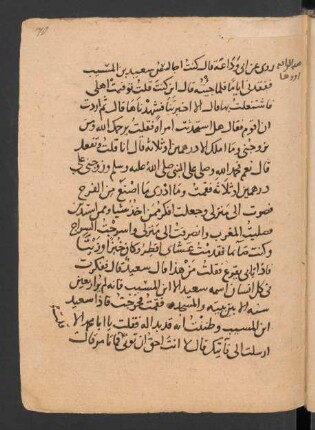 روى عن ابي وداعة قال كنت اجالس سعيد بن المسيب
ففقدني اياما فلما جئته قال اين كنت قلت توفيت اهلي
فاشتغلت بها قال الا اخبرتنا فشهدناها قال ثم اردت
ان اقوم فقال هل استحدثت امراة فقلت يرحمك الله ومن
يزوجني وما املك الا درهمين او ثلاثة فقال انا قلت وتفعل
قال نعم فحمد الله وصلى على النبي صلى الله عليه وسلم وزوجني على
درهمين او ثلاثة فقمت وما ادري ما اصنع من الفرح
فصرت الى منزلي وجعلت افكر ممن اخذ ممن استدين
فصليت المغرب وانصرفت الى منزلي واسرجت السراج
وكنت صائما فقدمت عشاي افطر وكان خبزا وزيتا
فاذا بابي يقرع فقلت من هذا قال سعيد قال ففكرت
في كل انسان اسمه سعيد الا ابن المسيب فانه لم ير اربعين
سنة الا بين بيته والمسجد فقمت فخرجت فاذا سعيد
ابن المسيب وظننت انه قد بدا له فقلت يا ابا محمد الا
ارسلت الي فآتيك قال لا انت احق ان توتى قلت فما تامر قال